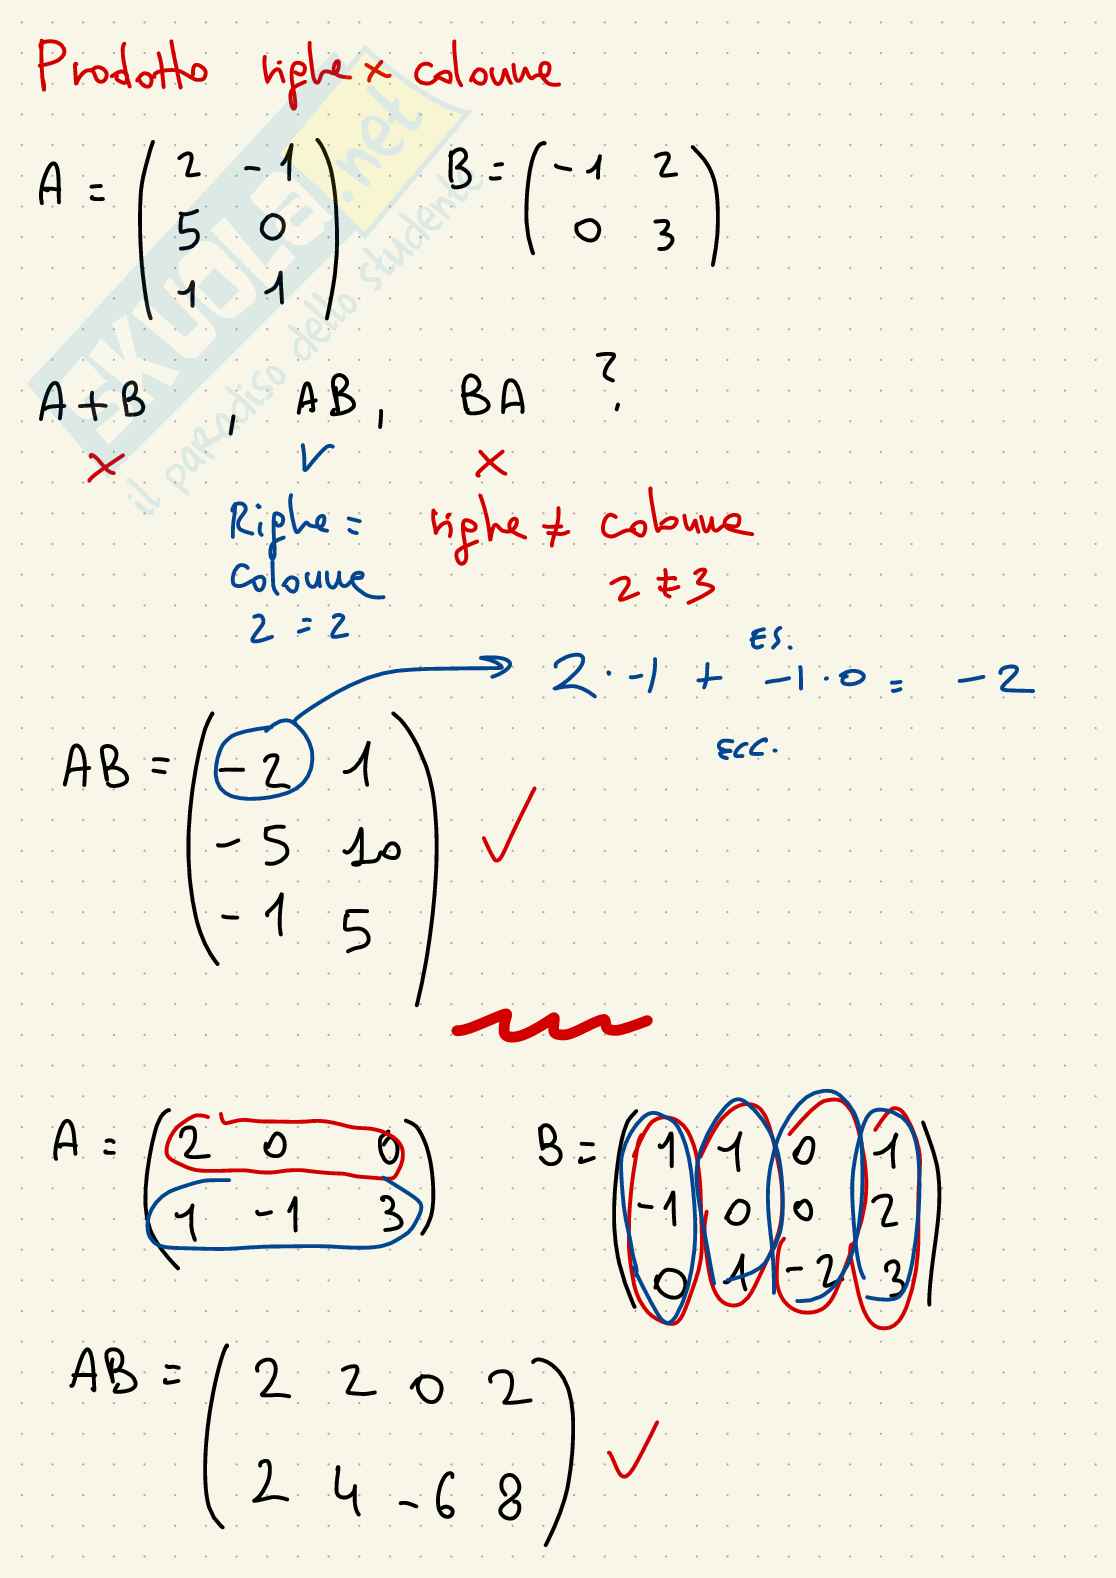 Prodotto righe x colonne
A = ( 2 -1 ) B = ( -1 2 )
5 0 0 3
1 1
A+B , AB, BA ?
x √ x
Righe = righe ≠ colonne
Colonne 2 ≠ 3
2 = 2
ES.
2 · -1 + -1 · 0 = -2
ECC.
AB = ( -2 1 ) ✓
-5 10
-1 5
A = ( 2 0 0 ) B = ( 1 1 0 1 )
1 -1 3 -1 0 0 2
0 1 -2 3
AB = ( 2 2 0 2 ) ✓
2 4 -6 8
SKUOLA.net
il paradiso dello studente